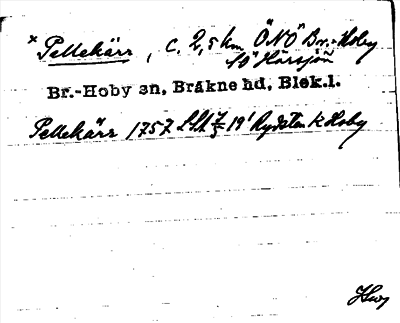 × Pellekärr, c. 2,5 km ÖNÖ Br.-Hoby
SÖ Härsjön
Br.-Hoby sn, Bräkne hd, Blek.l.
Pellekärr 1757 19' k Hoby